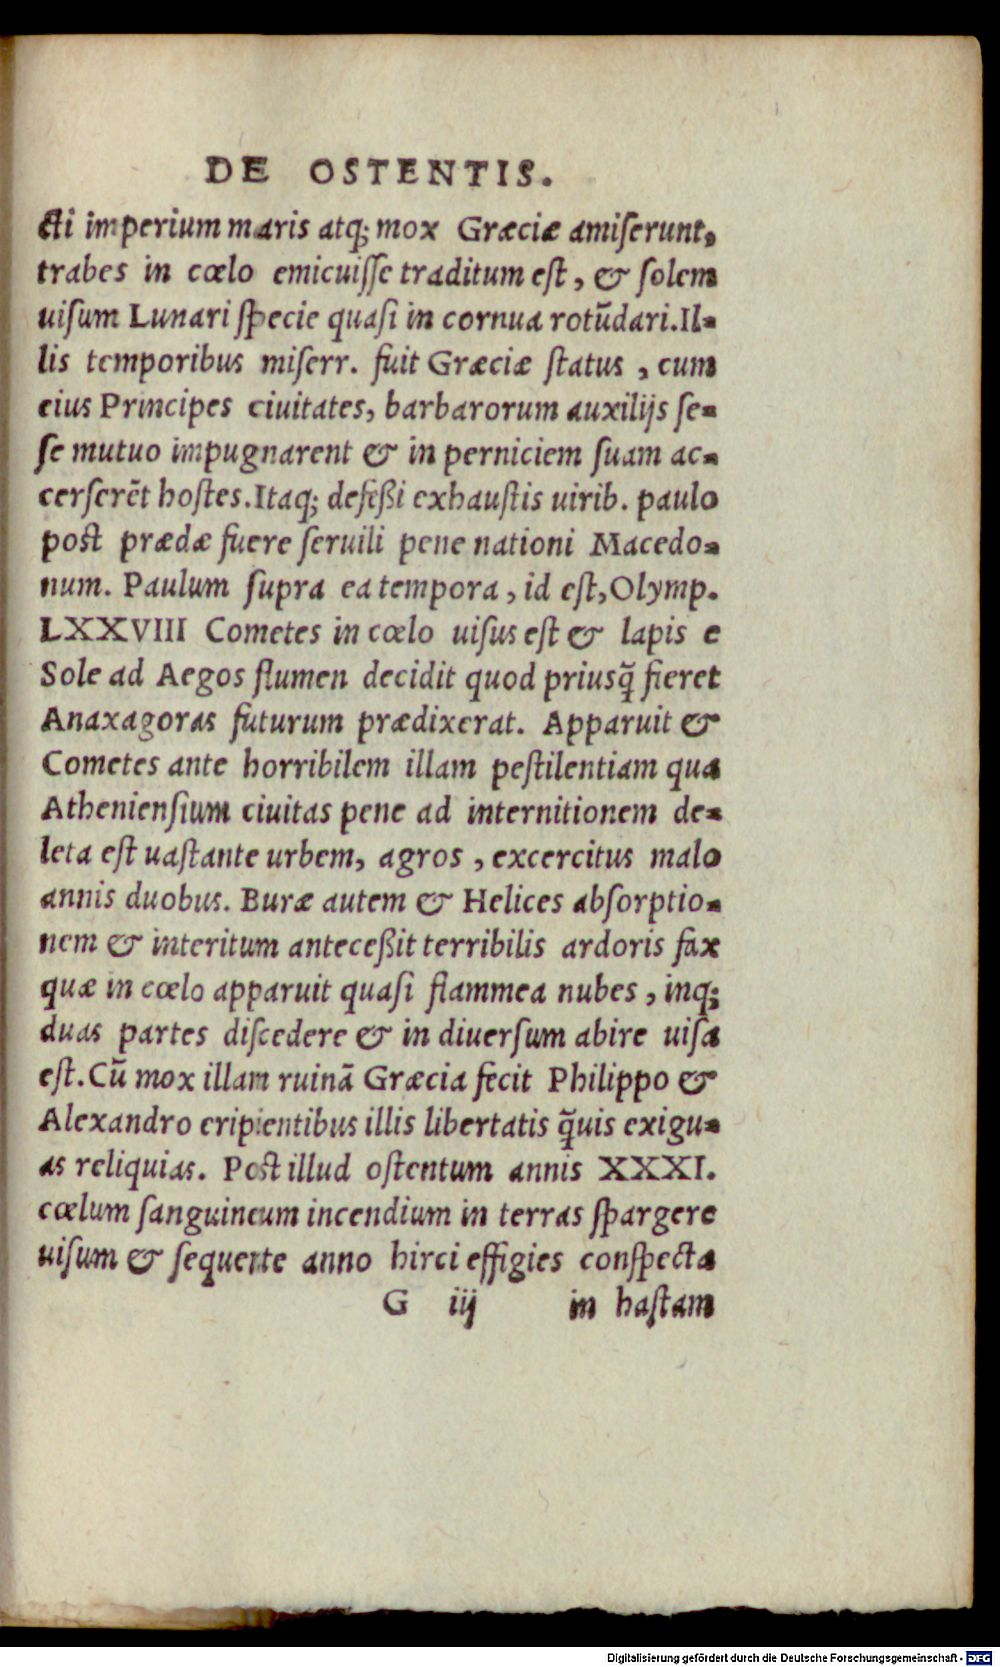 DE OSTENTIS.
cti imperium maris atq; mox Græciæ amiserunt,
trabes in cœlo emicuisse traditum est, & solem
uisum Lunari specie quasi in cornua rotūdari. Il-
lis temporibus miserr. fuit Græciæ status, cum
eius Principes ciuitates, barbarorum auxilijs se-
se mutuo impugnarent & in perniciem suam ac-
cerserēt hostes. Itaq; defeßi exhaustis uirib. paulo
post prædæ fuere seruili pene nationi Macedo-
num. Paulum supra ea tempora, id est, Olymp.
LXXVIII Cometes in cœlo uisus est & lapis e
Sole ad Aegos flumen decidit quod priusq̃ fieret
Anaxagoras futurum prædixerat. Apparuit &
Cometes ante horribilem illam pestilentiam qua
Atheniensium ciuitas pene ad internitionem de-
leta est uastante urbem, agros, excercitus malo
annis duobus. Buræ autem & Helices absorptio-
nem & interitum anteceßit terribilis ardoris fax
quæ in cœlo apparuit quasi flammea nubes, inq;
duas partes discedere & in diuersum abire uisa
est. Cū mox illam ruinā Græcia fecit Philippo &
Alexandro eripientibus illis libertatis q̃uis exigu-
as reliquias. Post illud ostentum annis XXXI.
cœlum sanguineum incendium in terras spargere
uisum & sequente anno hirci effigies conspecta
G iij in hastam
Digitalisierung gefördert durch die Deutsche Forschungsgemeinschaft - DFG